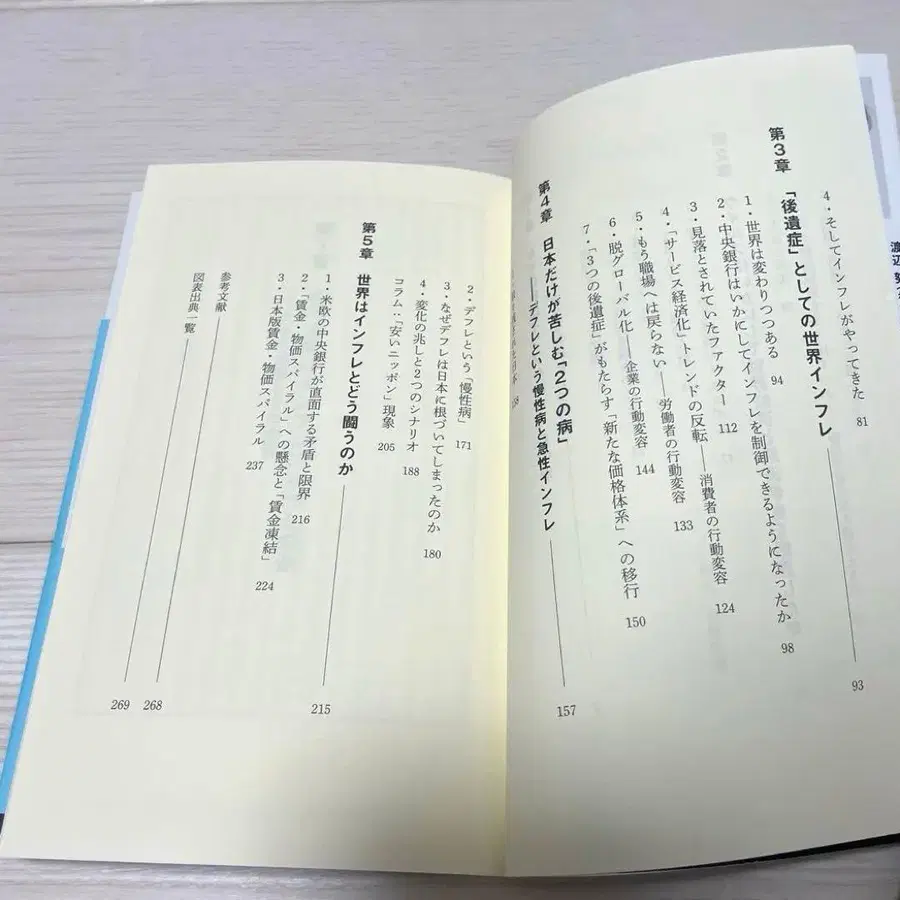 4・そしてインフレがやってきた 81
第3章 「後遺症」としての世界インフレ 93
1・世界は変わりつつある 94
2・中央銀行はいかにしてインフレを制御できるようになったか 98
3・見落とされていたファクター 112
4・「サービス経済化」トレンドの反転――消費者の行動変容 124
5・もう職場へは戻らない――労働者の行動変容 133
6・脱グローバル化――企業の行動変容 144
7・「3つの後遺症」がもたらす「新たな価格体系」への移行 150
第4章 日本だけが苦しむ「2つの病」
――デフレという慢性病と急性インフレ 157
158
2・デフレという「慢性病」 171
3・なぜデフレは日本に根づいてしまったのか 180
4・変化の兆しと2つのシナリオ 188
コラム：「安いニッポン」現象 205
第5章 世界はインフレとどう闘うのか 215
1・米欧の中央銀行が直面する矛盾と限界 216
2・「賃金・物価スパイラル」への懸念と「賃金凍結」 224
3・日本版賃金・物価スパイラル 237
参考文献 268
図表出典一覧 269
渡辺